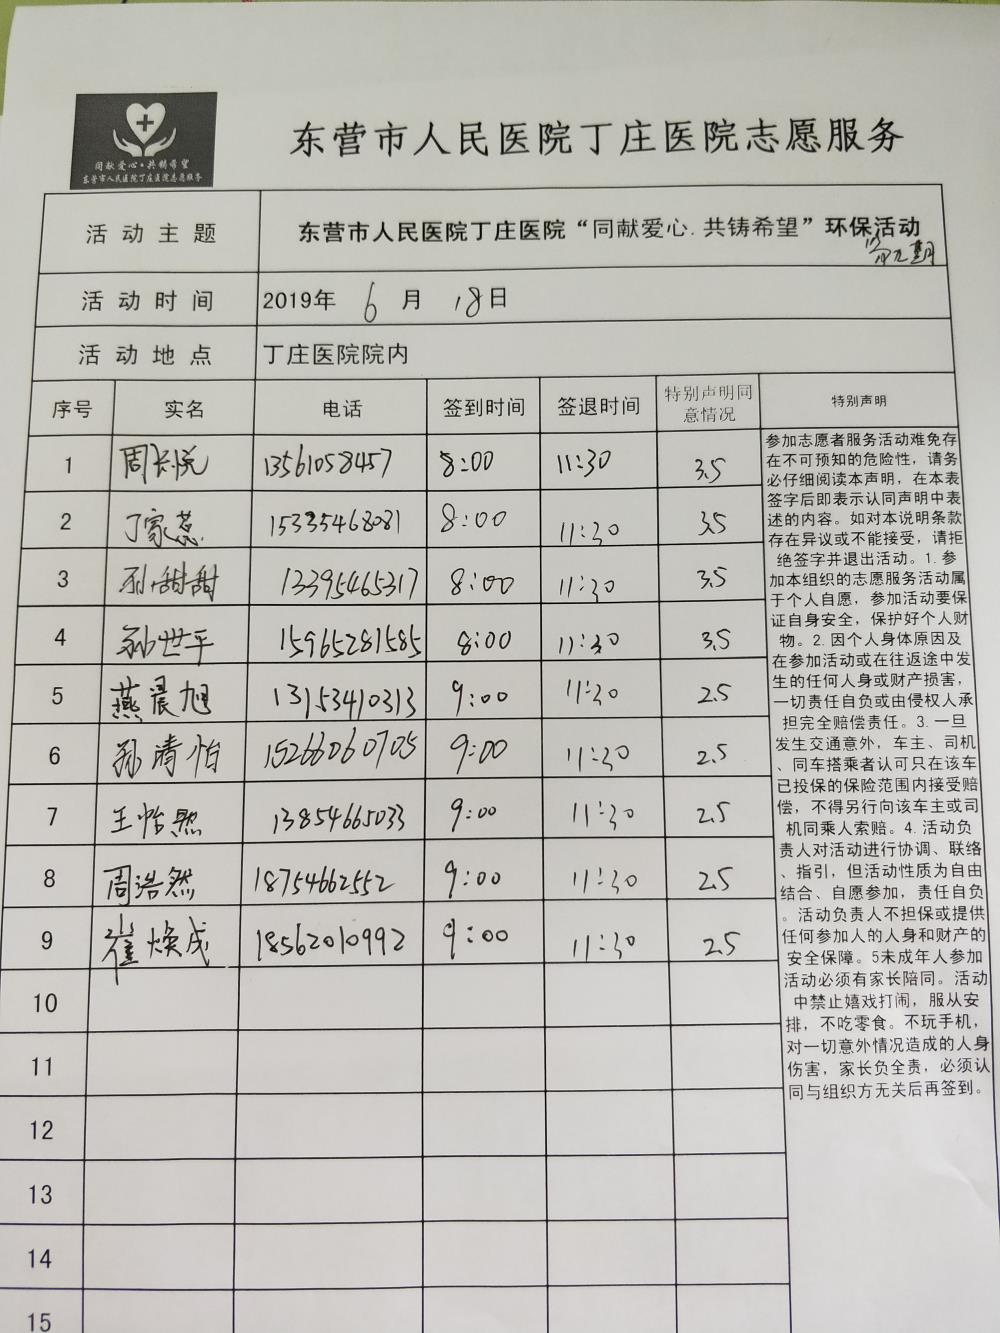 同献爱心·共铸希望
东营市人民医院丁庄医院志愿服务
东营市人民医院丁庄医院志愿服务
活动主题 东营市人民医院丁庄医院“同献爱心.共铸希望”环保活动
活动时间 2019年 6 月 18日
活动地点 丁庄医院院内
序号 实名 电话 签到时间 签退时间 特别声明同意情况 特别声明
1 周长悦 13561058457 8:00 11:30 3.5
2 丁家蕊 15335468081 8:00 11:30 3.5
3 孙甜甜 13395465317 8:00 11:30 3.5
4 孙世平 15965281585 8:00 11:30 3.5
5 燕晨旭 13153410313 9:00 11:30 2.5
6 孙清怡 15266060705 9:00 11:30 2.5
7 王怡然 13854665033 9:00 11:30 2.5
8 周浩然 18754662552 9:00 11:30 2.5
9 崔焕成 18562010992 9:00 11:30 2.5
10
11
12
13
14
15
参加志愿者服务活动难免存
在不可预知的危险性，请务
必仔细阅读本声明，在本表
签字后即表示认同声明中表
述的内容。如对本说明条款
存在异议或不能接受，请拒
绝签字并退出活动。1.参
加本组织的志愿服务活动属
于个人自愿，参加活动要保
证自身安全，保护好个人财
物。2.因个人身体原因及
在参加活动或在往返途中发
生的任何人身或财产损害，
一切责任自负或由侵权人承
担完全赔偿责任。3.一旦
发生交通意外，车主、司机
、同车搭乘者认可只在该车
已投保的保险范围内接受赔
偿，不得另行向该车主或司
机同乘人索赔。4.活动负
责人对活动进行协调、联络
、指引，但活动性质为自由
结合、自愿参加，责任自负
。活动负责人不担保或提供
任何参加人的人身和财产的
安全保障。5未成年人参加
活动必须有家长陪同。活动
中禁止嬉戏打闹，服从安
排，不吃零食。不玩手机，
对一切意外情况造成的人身
伤害，家长负全责，必须认
同与组织方无关后再签到。